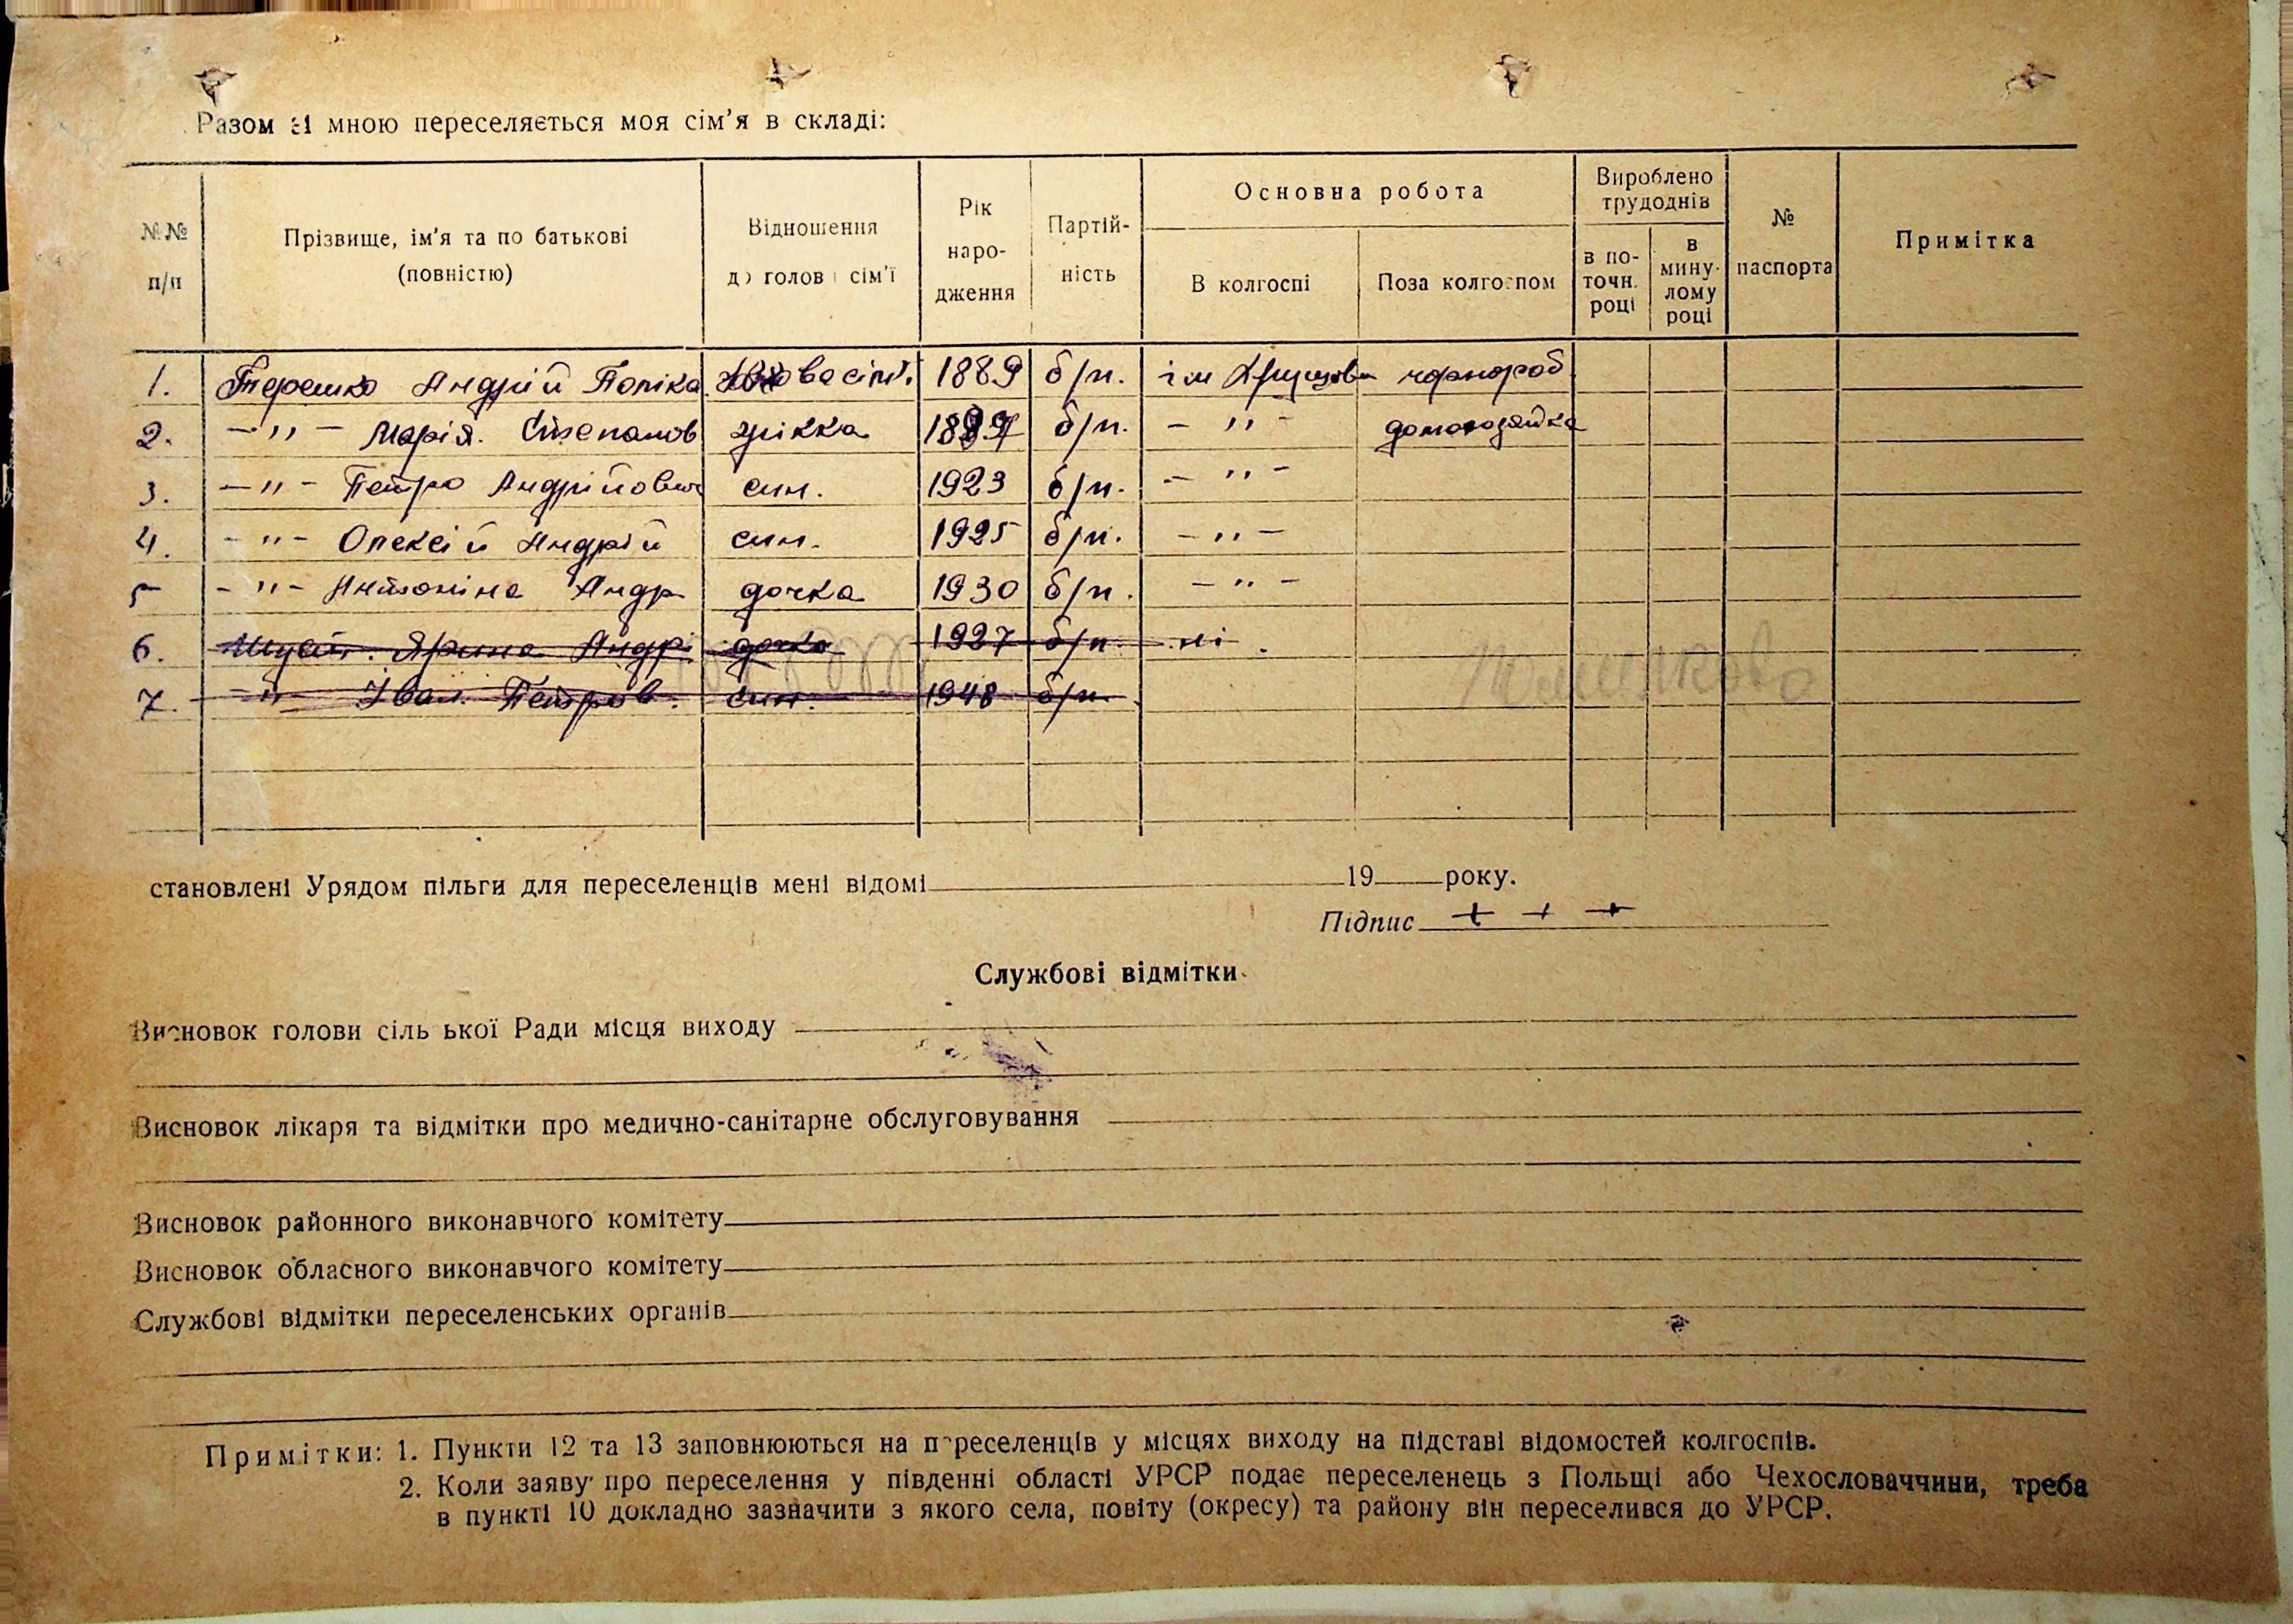 Разом зі мною переселяється моя сім'я в складі:
№№ п/п
Прізвище, ім'я та по батькові (повністю)
Відношення до голови сім'ї
Рік народження
Партій-
ність
Основна робота
В колгоспі
Поза колгоспом
Вироблено трудоднів
в по-
точн.
році
в
мину-
лому
році
№
паспорта
Примітка
1. Терешко Андрій Полікар. голова сім'ї. 1889 б/п. ім Хрущова чорнороб
2. —"— Марія. Степанов жінка 1897 б/п. —"— домогозяйка
3. —"— Петро Андрійович син. 1923 б/п. —"—
4. —"— Олексій Андрій син. 1925 б/п. —"—
5 —"— Антоніна Андр дочка 1930 б/п. —"—
6. Ярина Андрі дочка 1927 б/п. ні.
7. —"— Іван Петров. син. 1948 б/п.
становлені Урядом пільги для переселенців мені відомі 19 року.
Підпис + + +
Службові відмітки
Висновок голови сільської Ради місця виходу
Висновок лікаря та відмітки про медично-санітарне обслуговування
Висновок районного виконавчого комітету
Висновок обласного виконавчого комітету
Службові відмітки переселенських органів
Примітки: 1. Пункти 12 та 13 заповнюються на переселенців у місцях виходу на підставі відомостей колгоспів.
2. Коли заяву про переселення у південні області УРСР подає переселенець з Польщі або Чехословаччини, треба
в пункті 10 докладно зазначити з якого села, повіту (окресу) та району він переселився до УРСР.